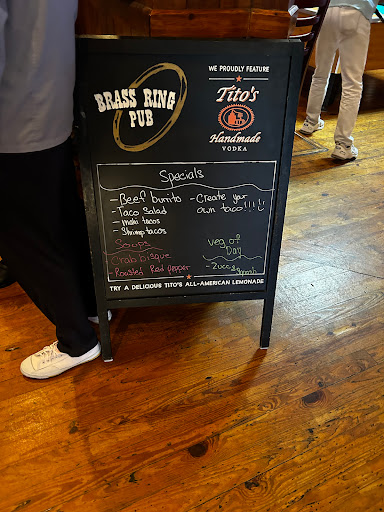 BRASS RING
PUB
WE PROUDLY FEATURE
Tito's
Handmade
VODKA
Specials
- Beef burrito
- Taco Salad
- mahi tacos
- Shrimp tacos
- Create your
own taco!!!!
Soups
Crab bisque
Roasted Red pepper
Veg of
Day
- Zucc & Squash
TRY A DELICIOUS TITO'S ALL-AMERICAN LEMONADE